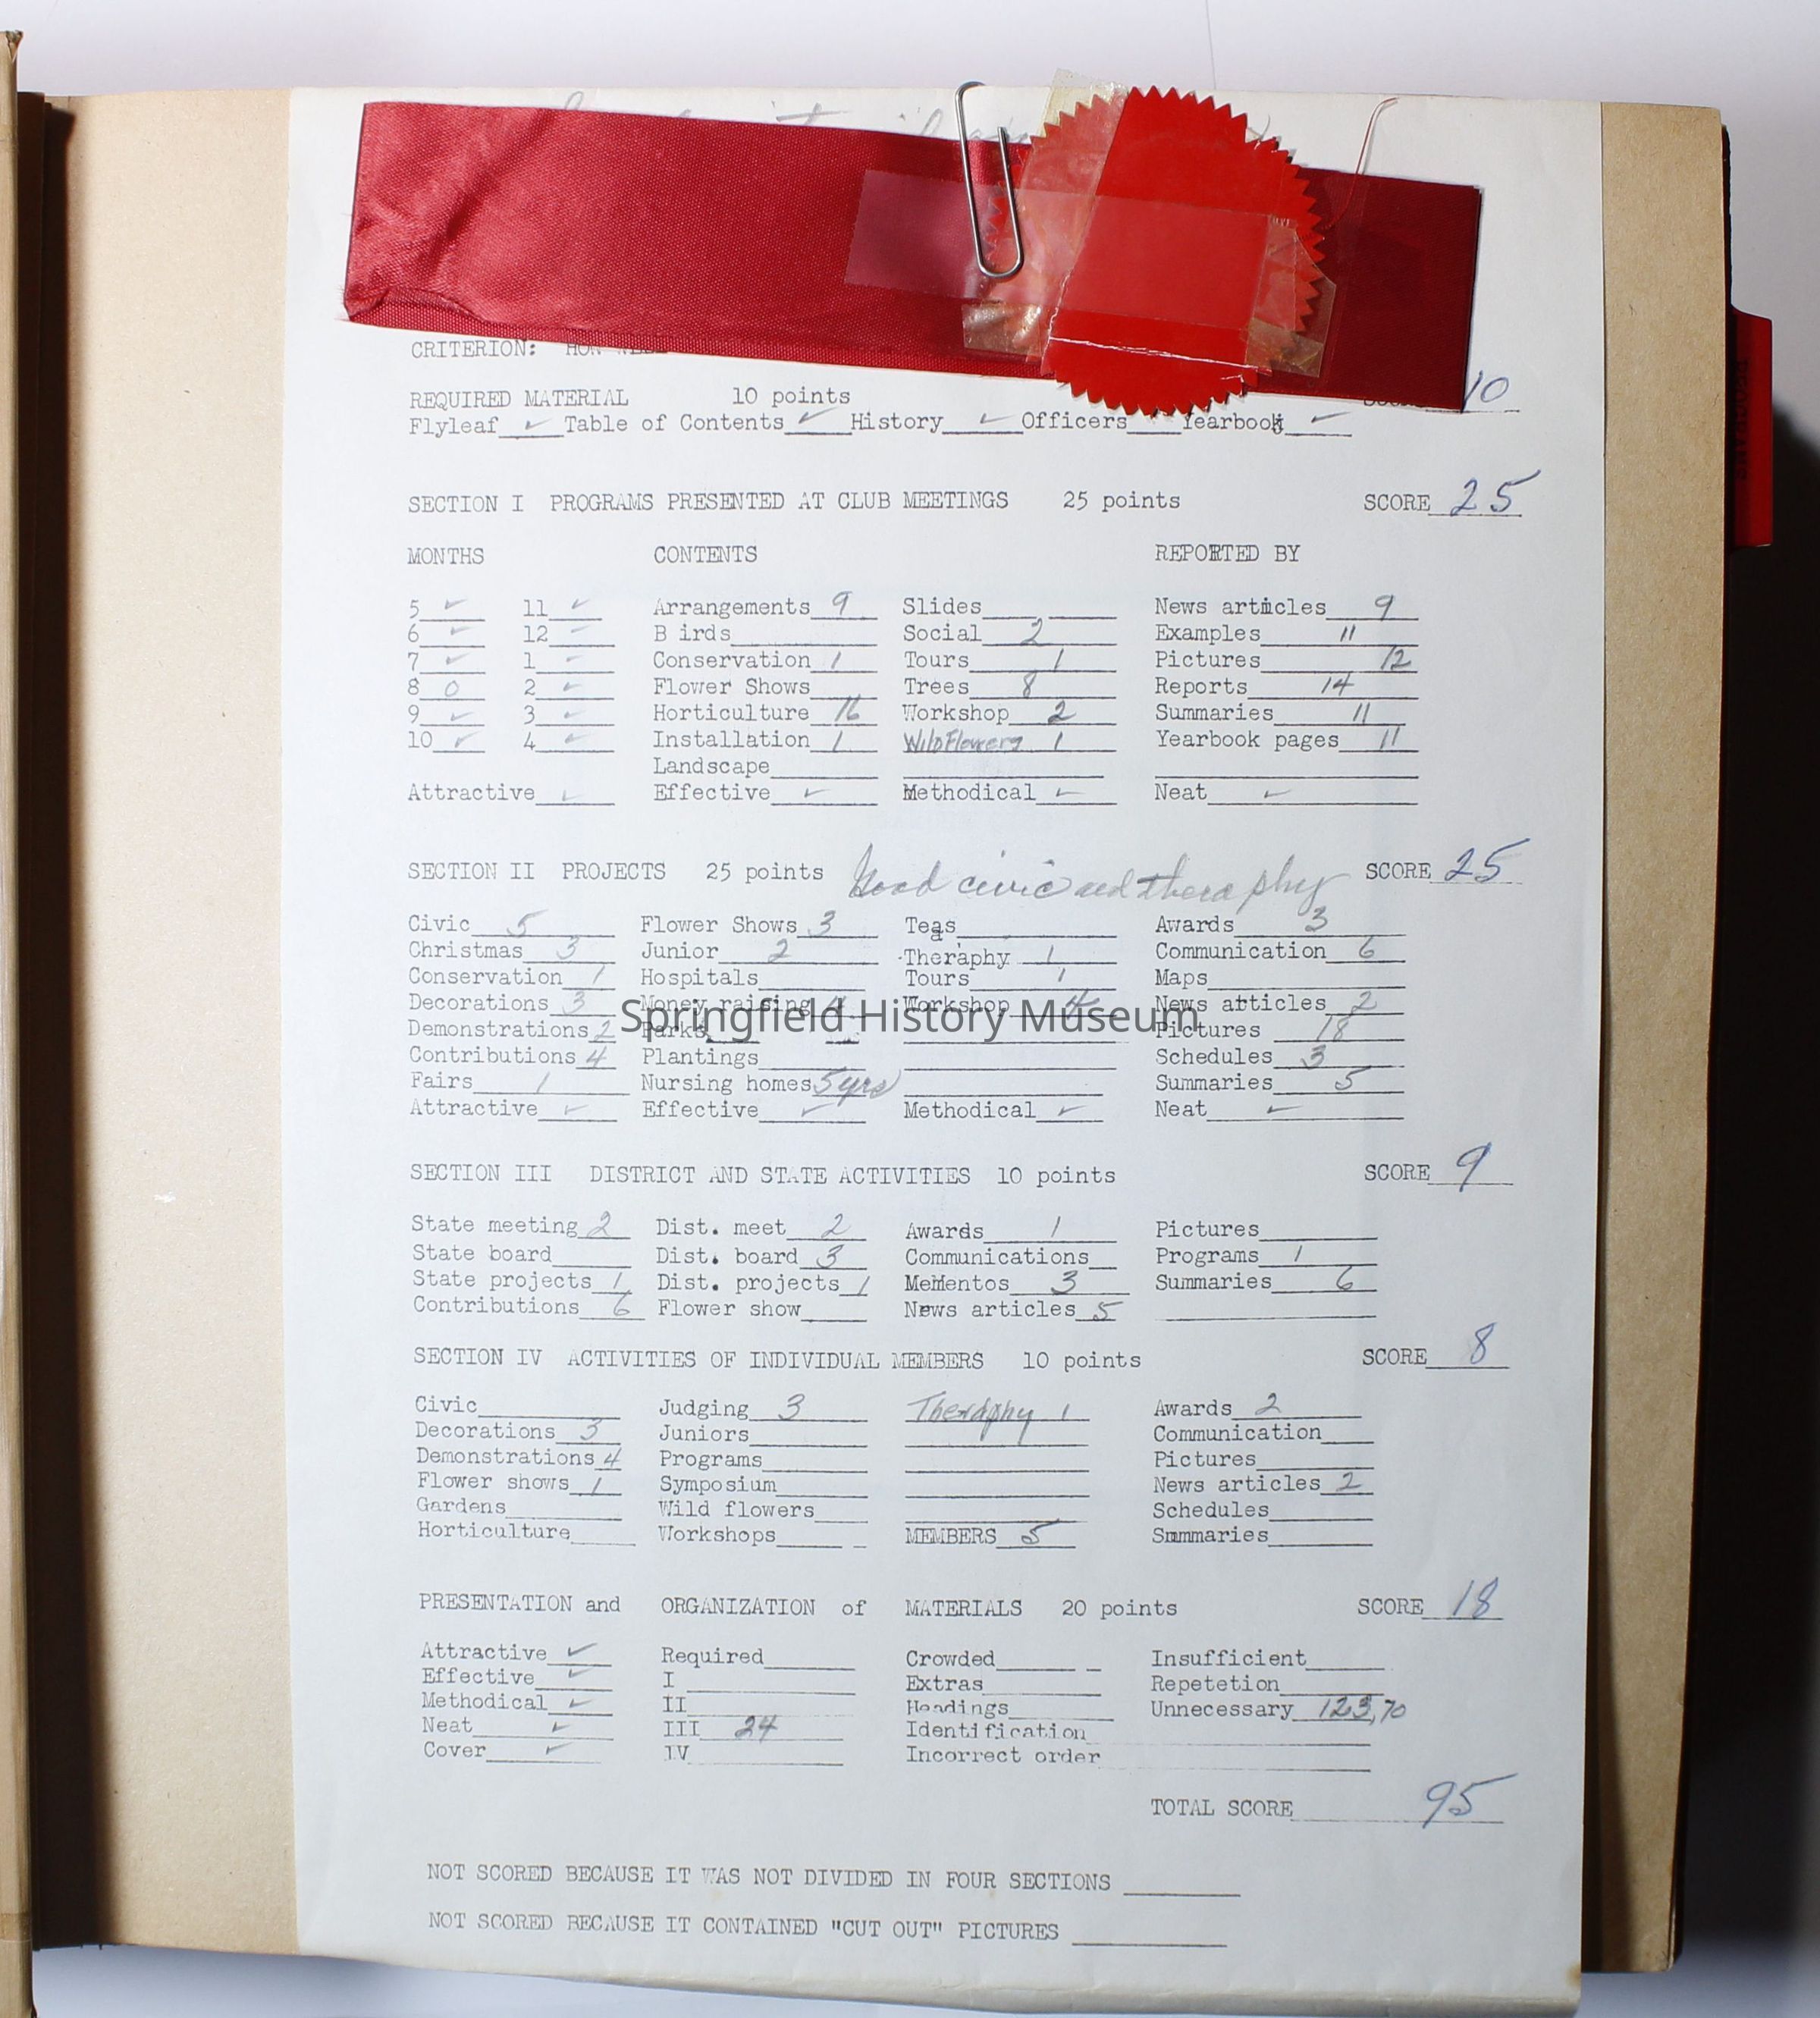 CRITERION: HOW WELL
REQUIRED MATERIAL 10 points 10
Flyleaf ✓ Table of Contents ✓ History ✓ Officers Yearbook ✓
SECTION I PROGRAMS PRESENTED AT CLUB MEETINGS 25 points SCORE 25
MONTHS CONTENTS REPORTED BY
5 ✓ 11 ✓ Arrangements 9 Slides News articles 9
6 ✓ 12 ✓ Birds Social 2 Examples 11
7 ✓ 1 ✓ Conservation 1 Tours 1 Pictures 12
8 0 2 ✓ Flower Shows Trees 8 Reports 14
9 ✓ 3 ✓ Horticulture 16 Workshop 2 Summaries 11
10 ✓ 4 ✓ Installation 1 Wild Flowers 1 Yearbook pages 11
Landscape
Attractive ✓ Effective ✓ Methodical ✓ Neat ✓
SECTION II PROJECTS 25 points Good civic and theraphy SCORE 25
Civic 5 Flower Shows 3 Teas Awards 3
Christmas 3 Junior 2 Theraphy 1 Communication 6
Conservation 1 Hospitals Tours 1 Maps
Decorations 3 Money raising 4 Workshop 4 News articles 2
Springfield History Museum
Demonstrations 2 Parks Pictures 18
Contributions 4 Plantings Schedules 3
Fairs 1 Nursing homes 5 yrs Summaries 5
Attractive ✓ Effective ✓ Methodical ✓ Neat ✓
SECTION III DISTRICT AND STATE ACTIVITIES 10 points SCORE 9
State meeting 2 Dist. meet 2 Awards 1 Pictures
State board Dist. board 3 Communications Programs 1
State projects 1 Dist. projects 1 Mementos 3 Summaries 6
Contributions 6 Flower show News articles 5
SECTION IV ACTIVITIES OF INDIVIDUAL MEMBERS 10 points SCORE 8
Civic Judging 3 Theraphy 1 Awards 2
Decorations 3 Juniors Communication
Demonstrations 4 Programs Pictures
Flower shows 1 Symposium News articles 2
Gardens Wild flowers Schedules
Horticulture Workshops MEMBERS 5 Summaries
PRESENTATION and ORGANIZATION of MATERIALS 20 points SCORE 18
Attractive ✓ Required Crowded Insufficient
Effective ✓ I Extras Repetetion
Methodical ✓ II Headings Unnecessary 123,70
Neat ✓ III 24 Identification
Cover ✓ IV Incorrect order
TOTAL SCORE 95
NOT SCORED BECAUSE IT WAS NOT DIVIDED IN FOUR SECTIONS
NOT SCORED BECAUSE IT CONTAINED "CUT OUT" PICTURES